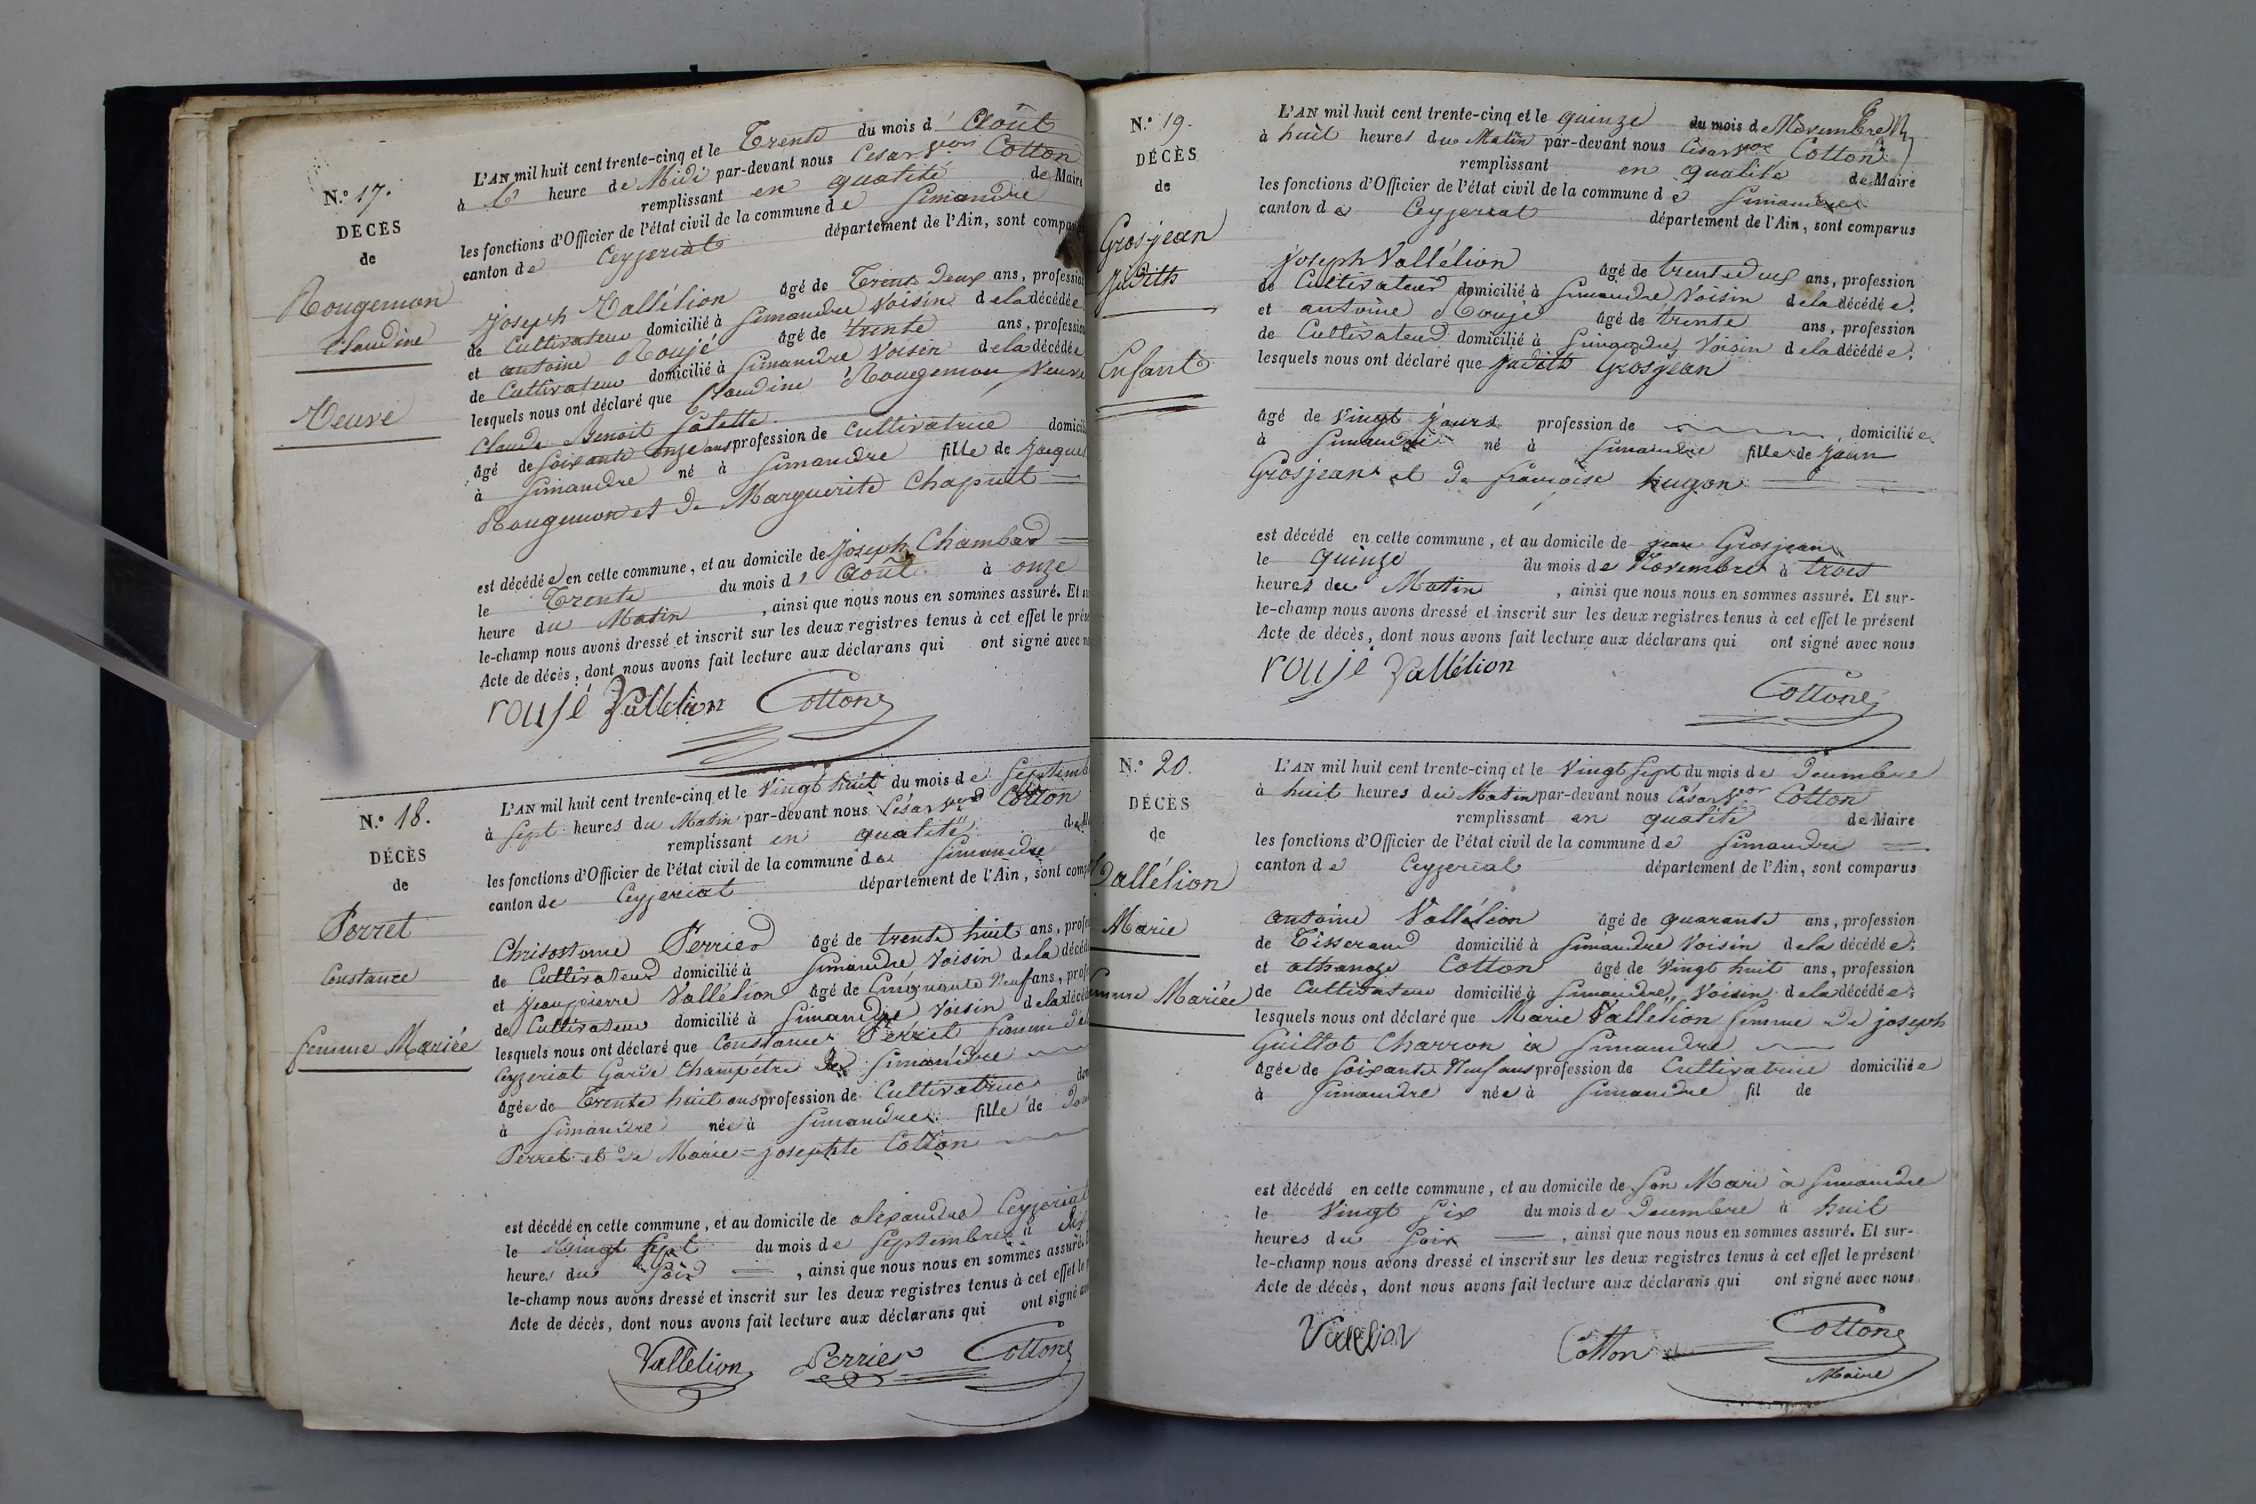 N.° 17.
DÉCÈS
de
Rougemon
Claudine
Veuve
L'AN mil huit cent trente-cinq et le Trente du mois d' Août
à heure de Midi par-devant nous Cesar Cotton
remplissant en qualité de Maire
les fonctions d'Officier de l'état civil de la commune de Simandre
canton de Ceyzeriat département de l'Ain, sont compar
joseph Vallélion âgé de Trente Deux ans, profession
de Cultivateur domicilié à Simandre Voisin de la décédée
et antoine Roujé âgé de trente ans, profession
de Cultivateur domicilié à Simandre Voisin de la décédée
lesquels nous ont déclaré que Claudine Rougemon Veuve
Claude Benoit
âgé de soixante onze ans profession de Cultivatrice domicili
à Simandre né à Simandre fille de Jacques
Rougemon et de Marguerite Chapuit
est décédée en cette commune, et au domicile de Joseph Chambard
le Trente du mois d' Août à onze
heure du Matin, ainsi que nous nous en sommes assuré. Et
le-champ nous avons dressé et inscrit sur les deux registres tenus à cet effet le prés
Acte de décès, dont nous avons fait lecture aux déclarans qui ont signé avec n
roujé Vallélion Cotton
N.° 18.
DÉCÈS
de
Perret
Constance
femme Mariée
L'AN mil huit cent trente-cinq et le Vingt huit du mois de Septemb
à Sept heures du Matin par-devant nous César Cotton
remplissant en qualité de M
les fonctions d'Officier de l'état civil de la commune de Simandre
canton de Ceyzeriat département de l'Ain, sont comp
Chrisostome Perrier âgé de trente huit ans, profe
de Cultivateur domicilié à Simandre Voisin de la décéd
et jean pierre Vallélion âgé de Cinquante Neuf ans, prof
de Cultivateur domicilié à Simandre Voisin de la décéd
lesquels nous ont déclaré que Constance Perret femme d'
Ceyzeriat Garde Champêtre de Simandre
âgée de Trente huit ans profession de Cultivatrice dom
à Simandre née à Simandre fille de
Perret et de Marie-josephte Cotton
est décédé en cette commune, et au domicile de alexandre Ceyzeriat
le Vingt Sept du mois de Septembre à
heures du Soir, ainsi que nous nous en sommes assuré.
le-champ nous avons dressé et inscrit sur les deux registres tenus à cet effet le
Acte de décès, dont nous avons fait lecture aux déclarans qui ont signé
Vallélion Perrier Cotton
N.° 19.
DÉCÈS
de
Grosjean
judith
Enfant
L'AN mil huit cent trente-cinq et le quinze du mois de Novembre
à huit heures du Matin par-devant nous César Cotton
remplissant en qualité de Maire
les fonctions d'Officier de l'état civil de la commune de Simandre
canton de Ceyzeriat département de l'Ain, sont comparus
joseph Vallélion âgé de trente deux ans, profession
de Cultivateur domicilié à Simandre Voisin de la décédée
et antoine Roujé âgé de trente ans, profession
de Cultivateur domicilié à Simandre Voisin de la décédée
lesquels nous ont déclaré que judith Grosjean
âgé de Vingt jours profession de, domiciliée
à Simandre né à Simandre fille de jean
Grosjean et de françoise hugon
est décédé en cette commune, et au domicile de jean Grosjean
le quinze du mois de Novembre à trois
heures du Matin, ainsi que nous nous en sommes assuré. Et sur-
le-champ nous avons dressé et inscrit sur les deux registres tenus à cet effet le présent
Acte de décès, dont nous avons fait lecture aux déclarans qui ont signé avec nous
roujé Vallélion
Cotton
N.° 20.
DÉCÈS
de
Vallélion
Marie
femme Mariée
L'AN mil huit cent trente-cinq et le Vingt Sept du mois de Decembre
à huit heures du Matin par-devant nous César Cotton
remplissant en qualité de Maire
les fonctions d'Officier de l'état civil de la commune de Simandre
canton de Ceyzeriat département de l'Ain, sont comparus
antoine Vallélion âgé de quarante ans, profession
de Tisserand domicilié à Simandre Voisin de la décédée
et athanaze Cotton âgé de Vingt huit ans, profession
de Cultivateur domicilié à Simandre Voisin de la décédée
lesquels nous ont déclaré que Marie Vallélion femme de joseph
Guillot Charron à Simandre
âgée de Soixante Neuf ans profession de Cultivatrice domiciliée
à Simandre née à Simandre fil de
est décédé en cette commune, et au domicile de Son Mari à Simandre
le Vingt Six du mois de Decembre à huit
heures du Soir, ainsi que nous nous en sommes assuré. Et sur-
le-champ nous avons dressé et inscrit sur les deux registres tenus à cet effet le présent
Acte de décès, dont nous avons fait lecture aux déclarans qui ont signé avec nous
Vallélion Cotton Cotton
Maire